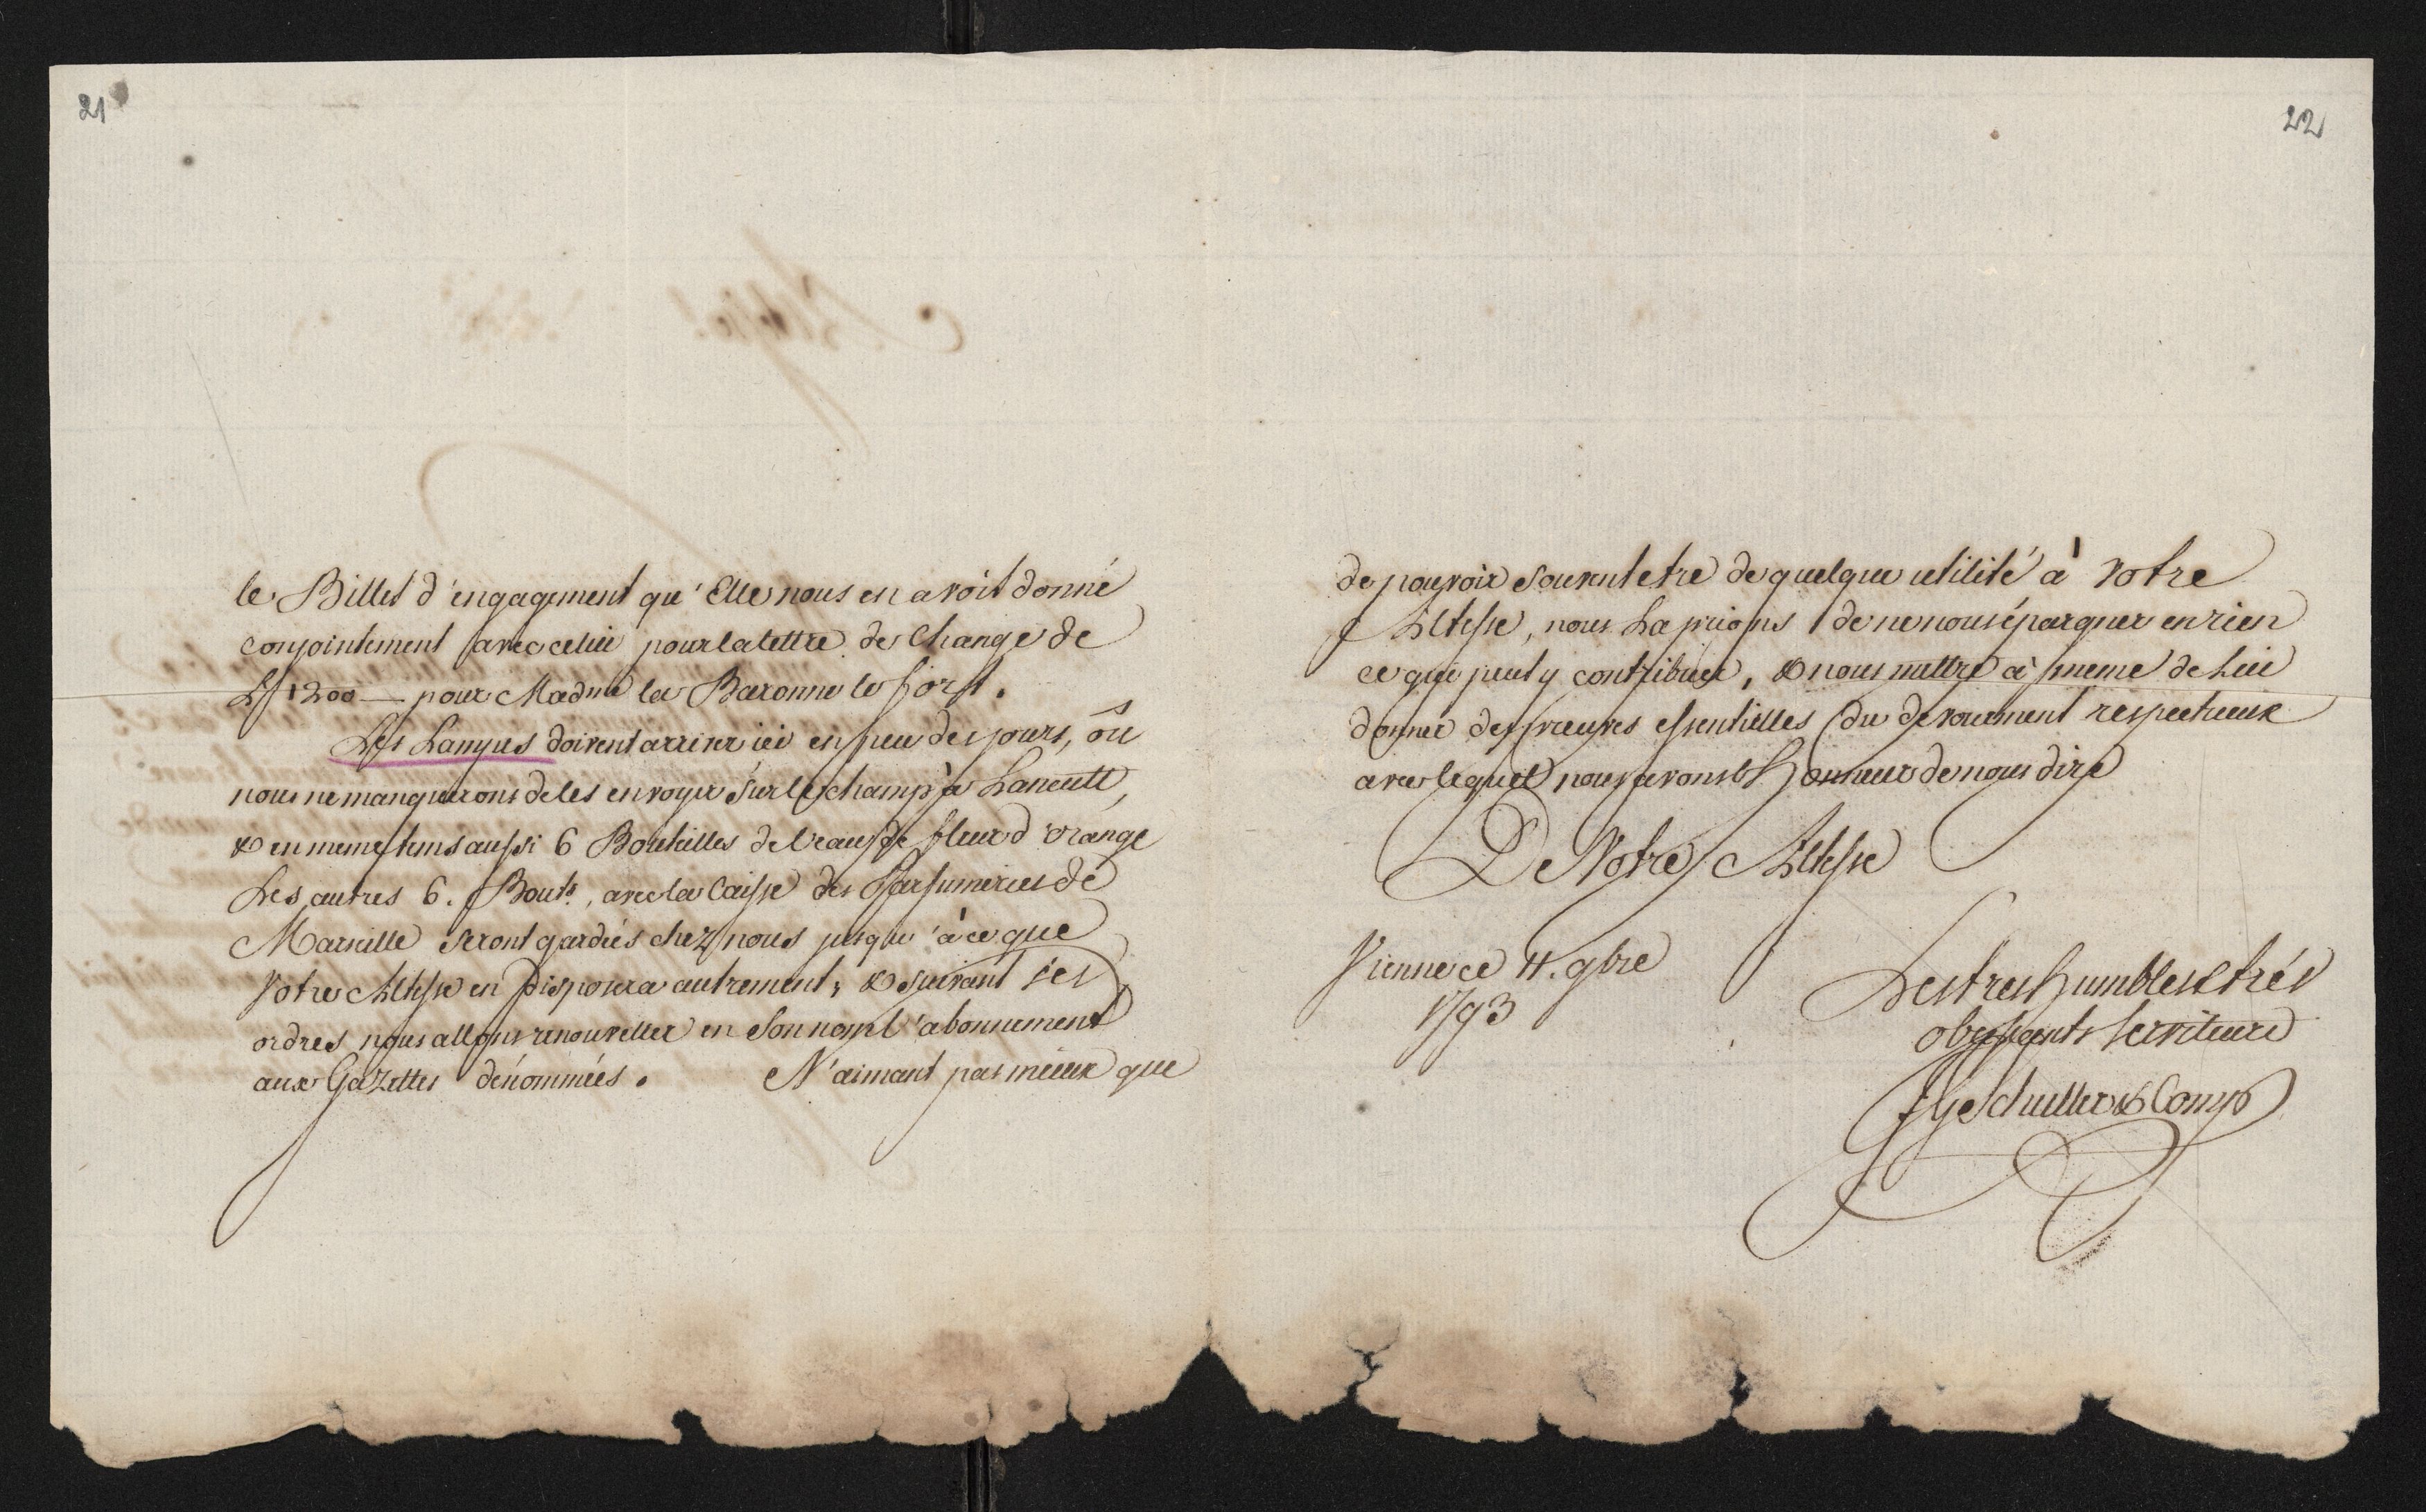 21
le Billet d'engagement qu'Elle nous en avoit donné
conjointement avec celui pour la lettre de Change de
1200 — pour Madme la Baronne le fort.
Les Lampes doivent arriver ici en peu des jours, où
nous ne manquerons de les envoyer sur le champ à Lancutt,
& en meme tems aussi 6 Bouteilles de l'eau de fleur d'orange
Les autres 6. Boutls, avec la Caisse des Parfumeries de
Marseille seront gardées chez nous jusqu'à ce que
Votre Altesse en disposera autrement; & suivant ses
ordres nous allons renouveller en son nom l'abonnement
aux Gazettes dénommées. N'aimant pas mieux que
22
de pouvoir souvent etre de quelque utilité à Votre
Altesse, nous La prions de ne nous épargner en rien
ce qui peut y contribuer, & nous mettre à meme de Lui
donner des preuves essentielles du devouement respectueux
avec lequel nous avons l'Honneur de nous dire
De Votre Altesse
Vienne ce 4. 9bre
1793
Les tres humbles & trés
obeissants Serviteurs
Schuller & Comp